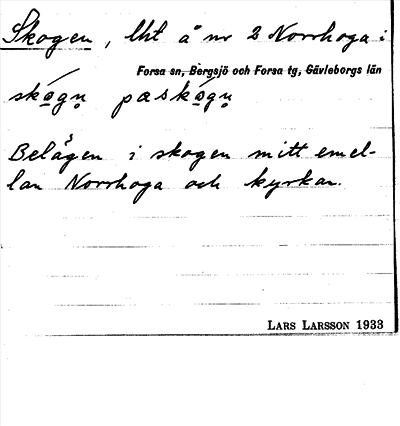 Skogen, lht å nr 2 Norrhoga i
Forsa sn, Bergsjö och Forsa tg, Gävleborgs län
skǫ́gn̥ pa skǫ́gn̥
Belägen i skogen mitt emel-
lan Norrhoga och kyrkan.
LARS LARSSON 1933